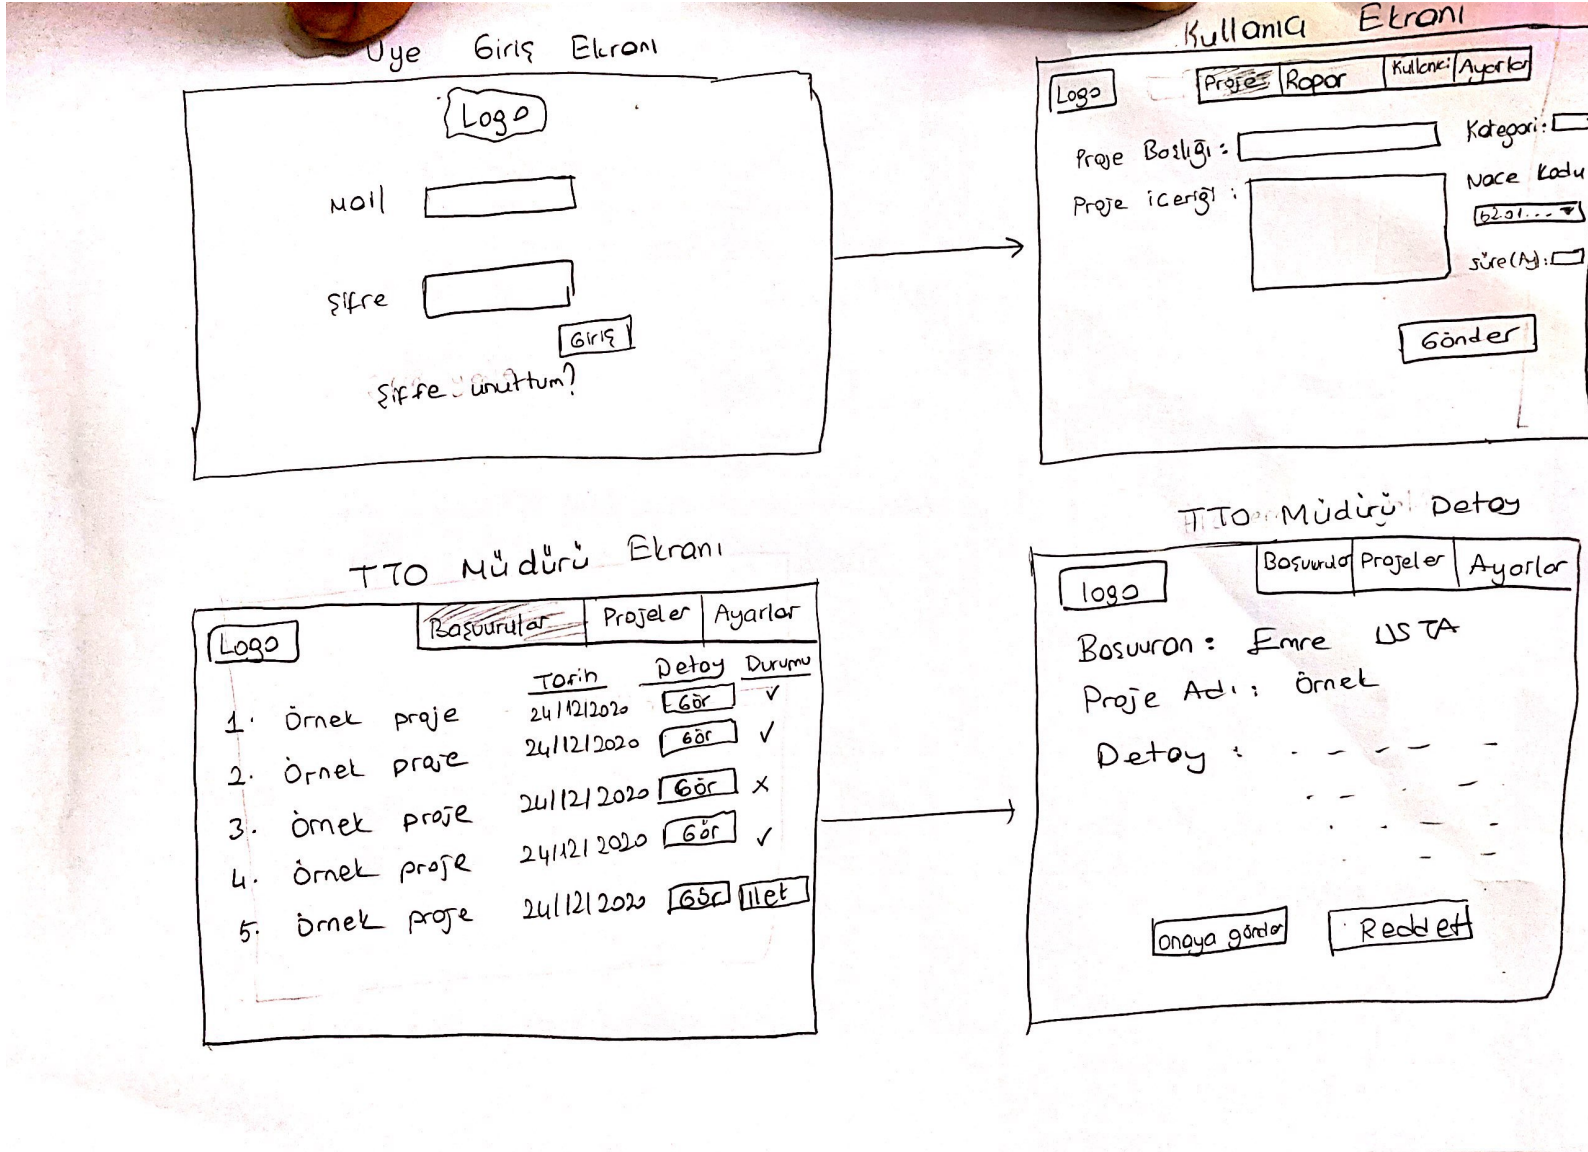 Üye Giriş Ekranı
Logo
Mail
Şifre
Giriş
Şifre unuttum?
Kullanıcı Ekranı
Logo
Proje Rapor Kullanıcı Ayarlar
Proje Başlığı :
Kategori :
Proje içeriği :
Nace Kodu
62.01... ▼
Süre(Ay) :
Gönder
TTO Müdürü Ekranı
Logo
Başvurular Projeler Ayarlar
Tarih Detay Durumu
1. Örnek proje 24/12/2020 Gör ✓
2. Örnek proje 24/12/2020 Gör ✓
3. Örnek proje 24/12/2020 Gör x
4. Örnek proje 24/12/2020 Gör ✓
5. Örnek proje 24/12/2020 Gör ilet
TTO Müdürü Detay
logo
Başvurular Projeler Ayarlar
Başvuran : Emre USTA
Proje Adı : Örnek
Detay :
onaya gönder Reddet